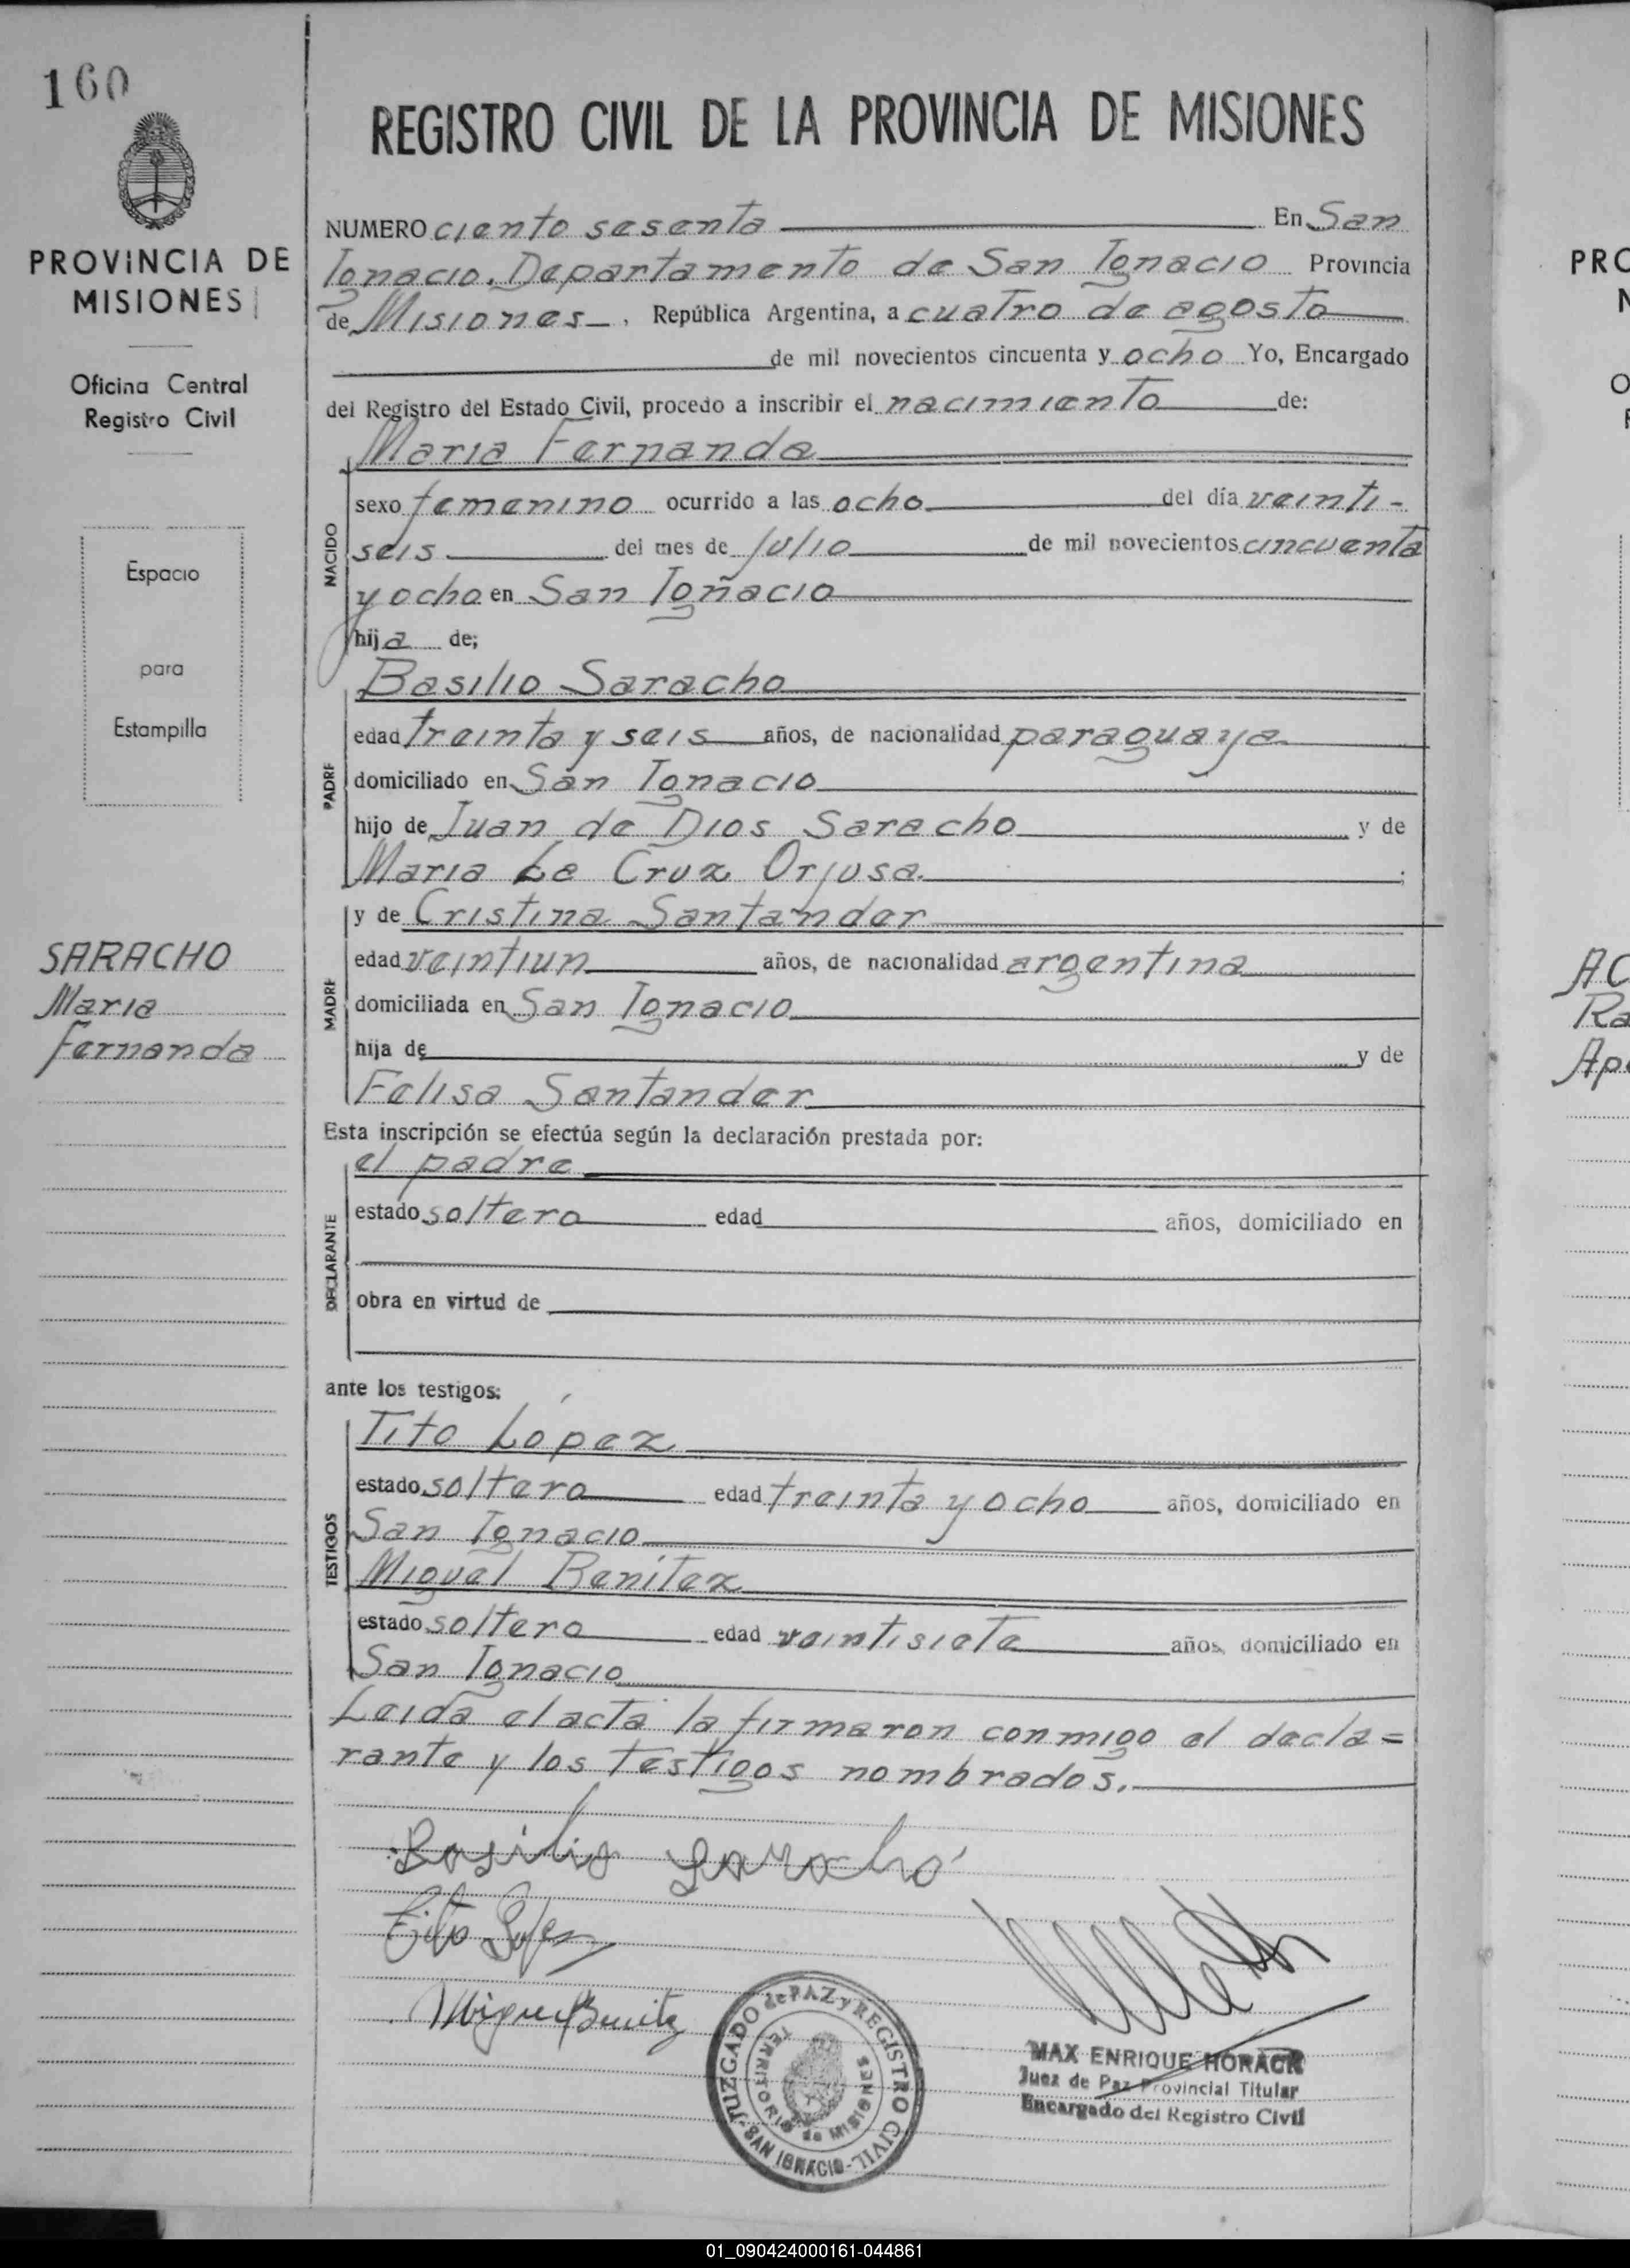 160
PROVINCIA DE
MISIONES
Oficina Central
Registro Civil
Espacio
para
Estampilla
SARACHO
Maria
Fernanda
REGISTRO CIVIL DE LA PROVINCIA DE MISIONES
NUMERO ciento sesenta En San
Ignacio. Departamento de San Ignacio Provincia
de Misiones, República Argentina, a cuatro de agosto
de mil novecientos cincuenta y ocho Yo, Encargado
del Registro del Estado Civil, procedo a inscribir el nacimiento de:
Maria Fernanda
NACIDO
sexo femenino ocurrido a las ocho del día veinti-
seis del mes de julio de mil novecientos cincuenta
y ocho en San Ignacio
hija de;
Basilio Saracho
PADRE
edad treinta y seis años, de nacionalidad paraguaya
domiciliado en San Ignacio
hijo de Juan de Dios Saracho y de
Maria La Cruz Orjusa ;
y de Cristina Santander
MADRE
edad veintiun años, de nacionalidad argentina
domiciliada en San Ignacio
hija de y de
Felisa Santander
Esta inscripción se efectúa según la declaración prestada por:
el padre
DECLARANTE
estado soltero edad años, domiciliado en
obra en virtud de
ante los testigos:
Tito López
TESTIGOS
estado soltero edad treinta y ocho años, domiciliado en
San Ignacio
Miguel Benítez
estado soltero edad veintisiete años, domiciliado en
San Ignacio
Leida el acta la firmaron conmigo el decla=
rante y los testigos nombrados.
Basilio Saracho
Tito Lopez
Miguel Benitez
JUZGADO de PAZ y REGISTRO CIVIL - SAN IGNACIO -
TERRITORIO de MISIONES
MAX ENRIQUE HORACK
Juez de Paz Provincial Titular
Encargado del Registro Civil
PRO
AC
Ra
Ap
01_090424000161-044861